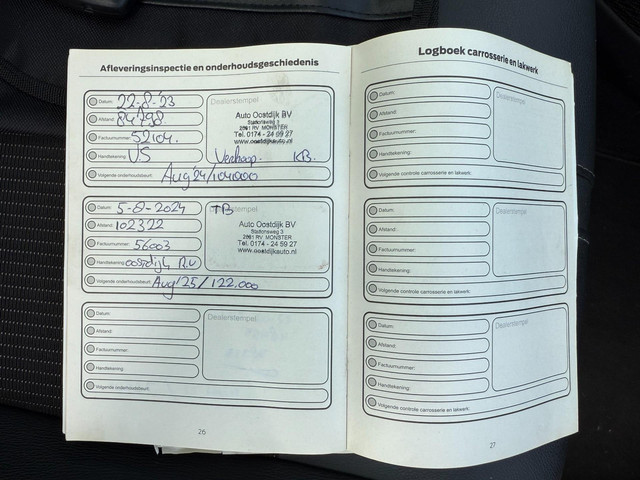 Afleveringsinspectie en onderhoudsgeschiedenis
Datum: 22-8-'23
Afstand: 84798
Factuurnummer: 52104.
Handtekening: VS
Volgende onderhoudsbeurt: Aug'24/104000
Dealerstempel
Auto Oostdijk BV
Stationsweg 3
2681 RV MONSTER
Tel. 0174 - 24 59 27
www.oostdijkauto.nl
Verkoop. KB.
Datum: 5-8-2024
Afstand: 102322
Factuurnummer: 56003
Handtekening: oostdijk B.V
Volgende onderhoudsbeurt: Aug'25/122.000
Dealerstempel
TB
Auto Oostdijk BV
Stationsweg 3
2681 RV MONSTER
Tel. 0174 - 24 59 27
www.oostdijkauto.nl
Datum:
Afstand:
Factuurnummer:
Handtekening:
Volgende onderhoudsbeurt:
Dealerstempel
26
Logboek carrosserie en lakwerk
Datum:
Afstand:
Factuurnummer:
Handtekening:
Volgende controle carrosserie en lakwerk:
Dealerstempel
Datum:
Afstand:
Factuurnummer:
Handtekening:
Volgende controle carrosserie en lakwerk:
Dealerstempel
Datum:
Afstand:
Factuurnummer:
Handtekening:
Volgende controle carrosserie en lakwerk:
Dealerstempel
27